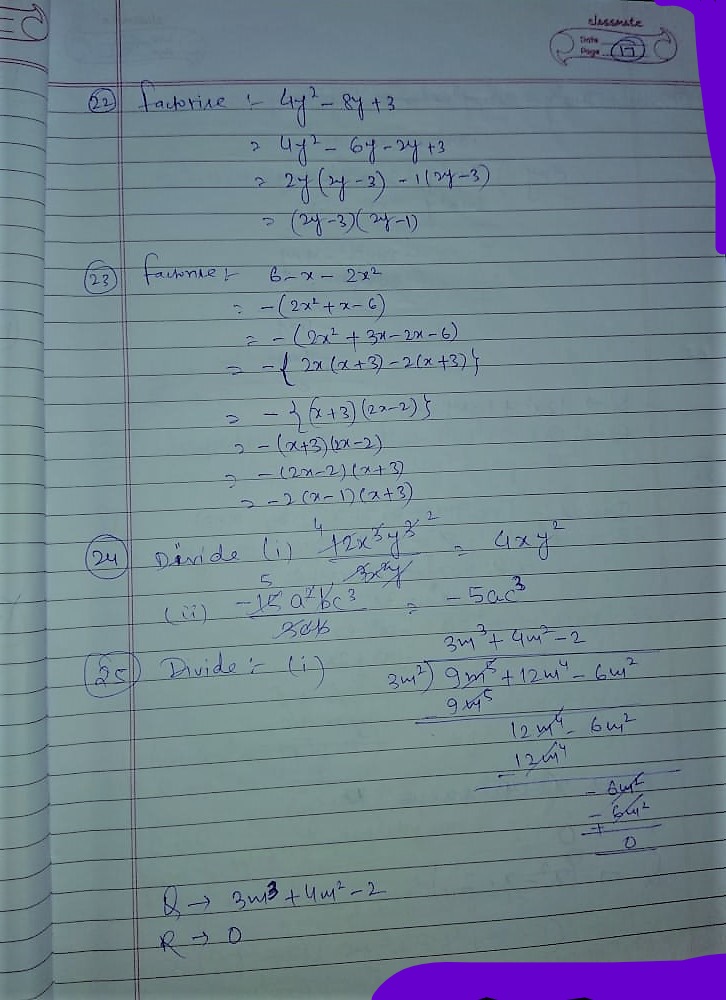 classmate
Date
Page 17
22 Factorise :- 4y² - 8y + 3
= 4y² - 6y - 2y + 3
= 2y(2y-3) - 1(2y-3)
= (2y-3)(2y-1)
23 Factorise:- 6 - x - 2x²
= -(2x² + x - 6)
= -(2x² + 3x - 2x - 6)
= -{2x(x+3) - 2(x+3)}
= -{(x+3)(2x-2)}
= -(x+3)(2x-2)
= -(2x-2)(x+3)
= -2(x-1)(x+3)
24 Divide (i) 12x³y³ / 3x²y = 4xy²
4 2
5
(ii) -15a²bc³ / 3ab = -5ac³
3m³ + 4m² - 2
25 Divide:- (i) 3m²) 9m⁵ + 12m⁴ - 6m²
9m⁵
12m⁴ - 6m²
- 12m⁴
- 6m²
- 6m²
+
0
Q → 3m³ + 4m² - 2
R → 0